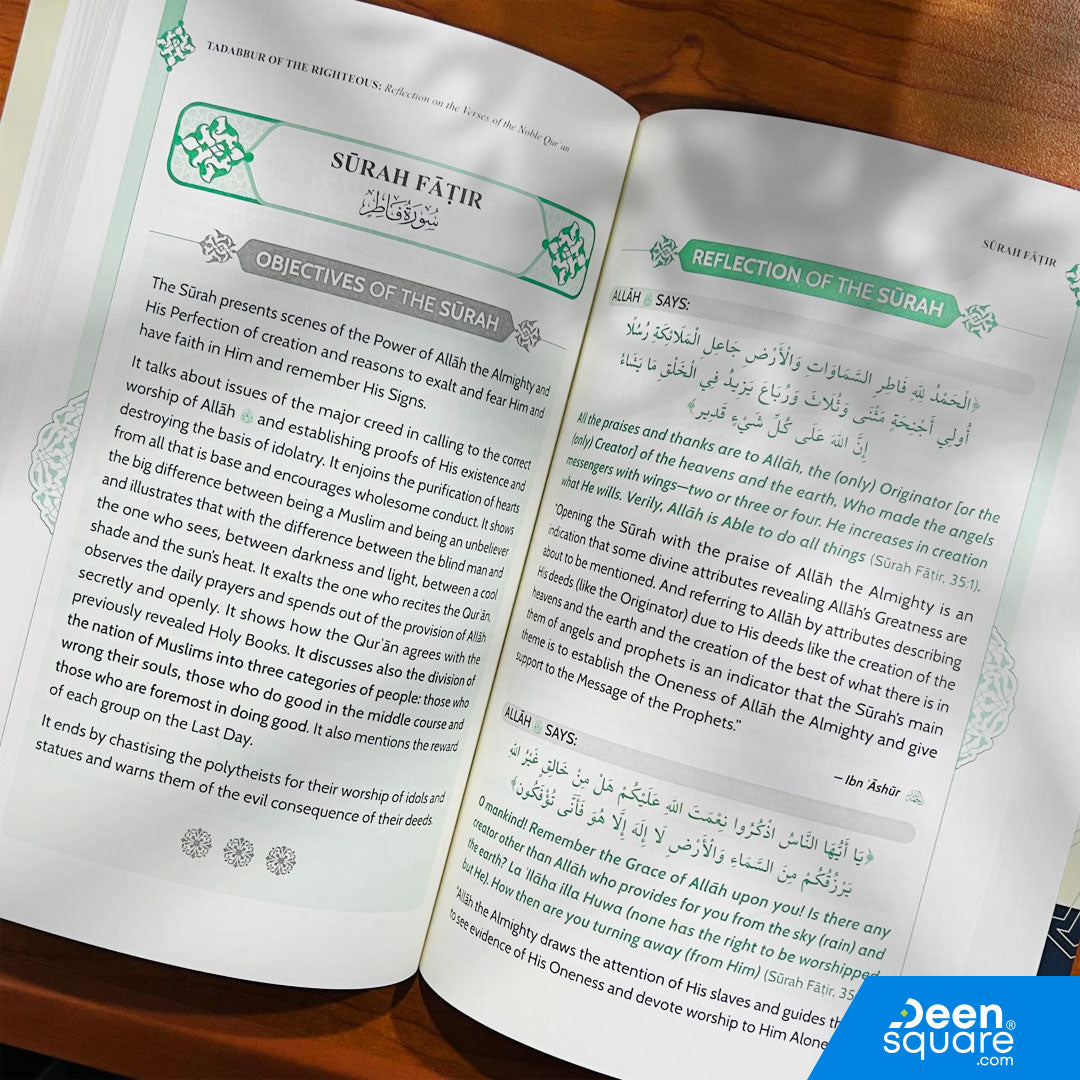 TADABBUR OF THE RIGHTEOUS: Reflection on the Verses of the Noble Qurʾan
SŪRAH FĀṬIR
سُورَةُ فَاطِرٍ
OBJECTIVES OF THE SŪRAH
The Sūrah presents scenes of the Power of Allāh the Almighty and
His Perfection of creation and reasons to exalt and fear Him and
have faith in Him and remember His Signs.
It talks about issues of the major creed in calling to the correct
worship of Allāh ﷻ and establishing proofs of His existence and
destroying the basis of idolatry. It enjoins the purification of hearts
from all that is base and encourages wholesome conduct. It shows
the big difference between being a Muslim and being an unbeliever
and illustrates that with the difference between the blind man and
the one who sees, between darkness and light, between a cool
shade and the sun's heat. It exalts the one who recites the Qurʾān,
observes the daily prayers and spends out of the provision of Allāh
secretly and openly. It shows how the Qurʾān agrees with the
previously revealed Holy Books. It discusses also the division of
the nation of Muslims into three categories of people: those who
wrong their souls, those who do good in the middle course and
those who are foremost in doing good. It also mentions the reward
of each group on the Last Day.
It ends by chastising the polytheists for their worship of idols and
statues and warns them of the evil consequence of their deeds.
SŪRAH FĀṬIR
REFLECTION OF THE SŪRAH
ALLĀH ﷻ SAYS:
﴿الْحَمْدُ لِلَّهِ فَاطِرِ السَّمَاوَاتِ وَالْأَرْضِ جَاعِلِ الْمَلَائِكَةِ رُسُلًا
أُولِي أَجْنِحَةٍ مَثْنَى وَثُلَاثَ وَرُبَاعَ يَزِيدُ فِي الْخَلْقِ مَا يَشَاءُ
إِنَّ اللهَ عَلَى كُلِّ شَيْءٍ قَدِير﴾
All the praises and thanks are to Allāh, the (only) Originator [or the
(only) Creator] of the heavens and the earth, Who made the angels
messengers with wings—two or three or four. He increases in creation
what He wills. Verily, Allāh is Able to do all things (Sūrah Fāṭir, 35:1).
"Opening the Sūrah with the praise of Allāh the Almighty is an
indication that some divine attributes revealing Allāh's Greatness are
about to be mentioned. And referring to Allāh by attributes describing
His deeds (like the Originator) due to His deeds like the creation of the
heavens and the earth and the creation of the best of what there is in
them of angels and prophets is an indicator that the Sūrah's main
theme is to establish the Oneness of Allāh the Almighty and give
support to the Message of the Prophets."
— Ibn ʿĀshūr
ALLĀH ﷻ SAYS:
﴿يَا أَيُّهَا النَّاسُ اذْكُرُوا نِعْمَتَ اللهِ عَلَيْكُمْ هَلْ مِنْ خَالِقٍ غَيْرُ اللهِ
يَرْزُقُكُمْ مِنَ السَّمَاءِ وَالْأَرْضِ لَا إِلَهَ إِلَّا هُوَ فَأَنَّى تُؤْفَكُونَ﴾
O mankind! Remember the Grace of Allāh upon you! Is there any
creator other than Allāh who provides for you from the sky (rain) and
the earth? La ʾIlāha illa Huwa (none has the right to be worshipped
but He). How then are you turning away (from Him) (Sūrah Fāṭir, 35
"Allāh the Almighty draws the attention of His slaves and guides
to see evidence of His Oneness and devote worship to Him Alone
Deen®
square
.com